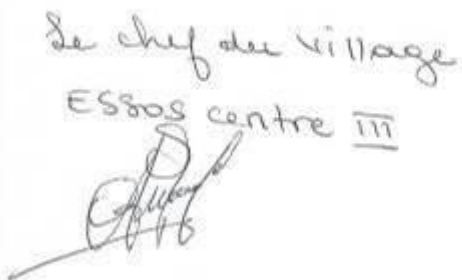 Le chef du village
ESSOS centre III